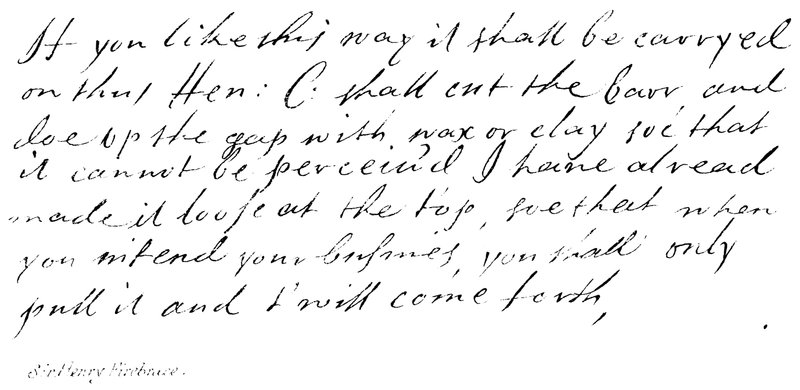 If you like this way it shall be carryed
on thus Hen: C: shall cut the barr and
doe up the gap with wax or clay soe that
it cannot be perceiu'd I haue alread
made it loose at the top, soe that when
you intend your busines, you shall only
pull it and t'will come forth,
Sir Henry Firebrace.